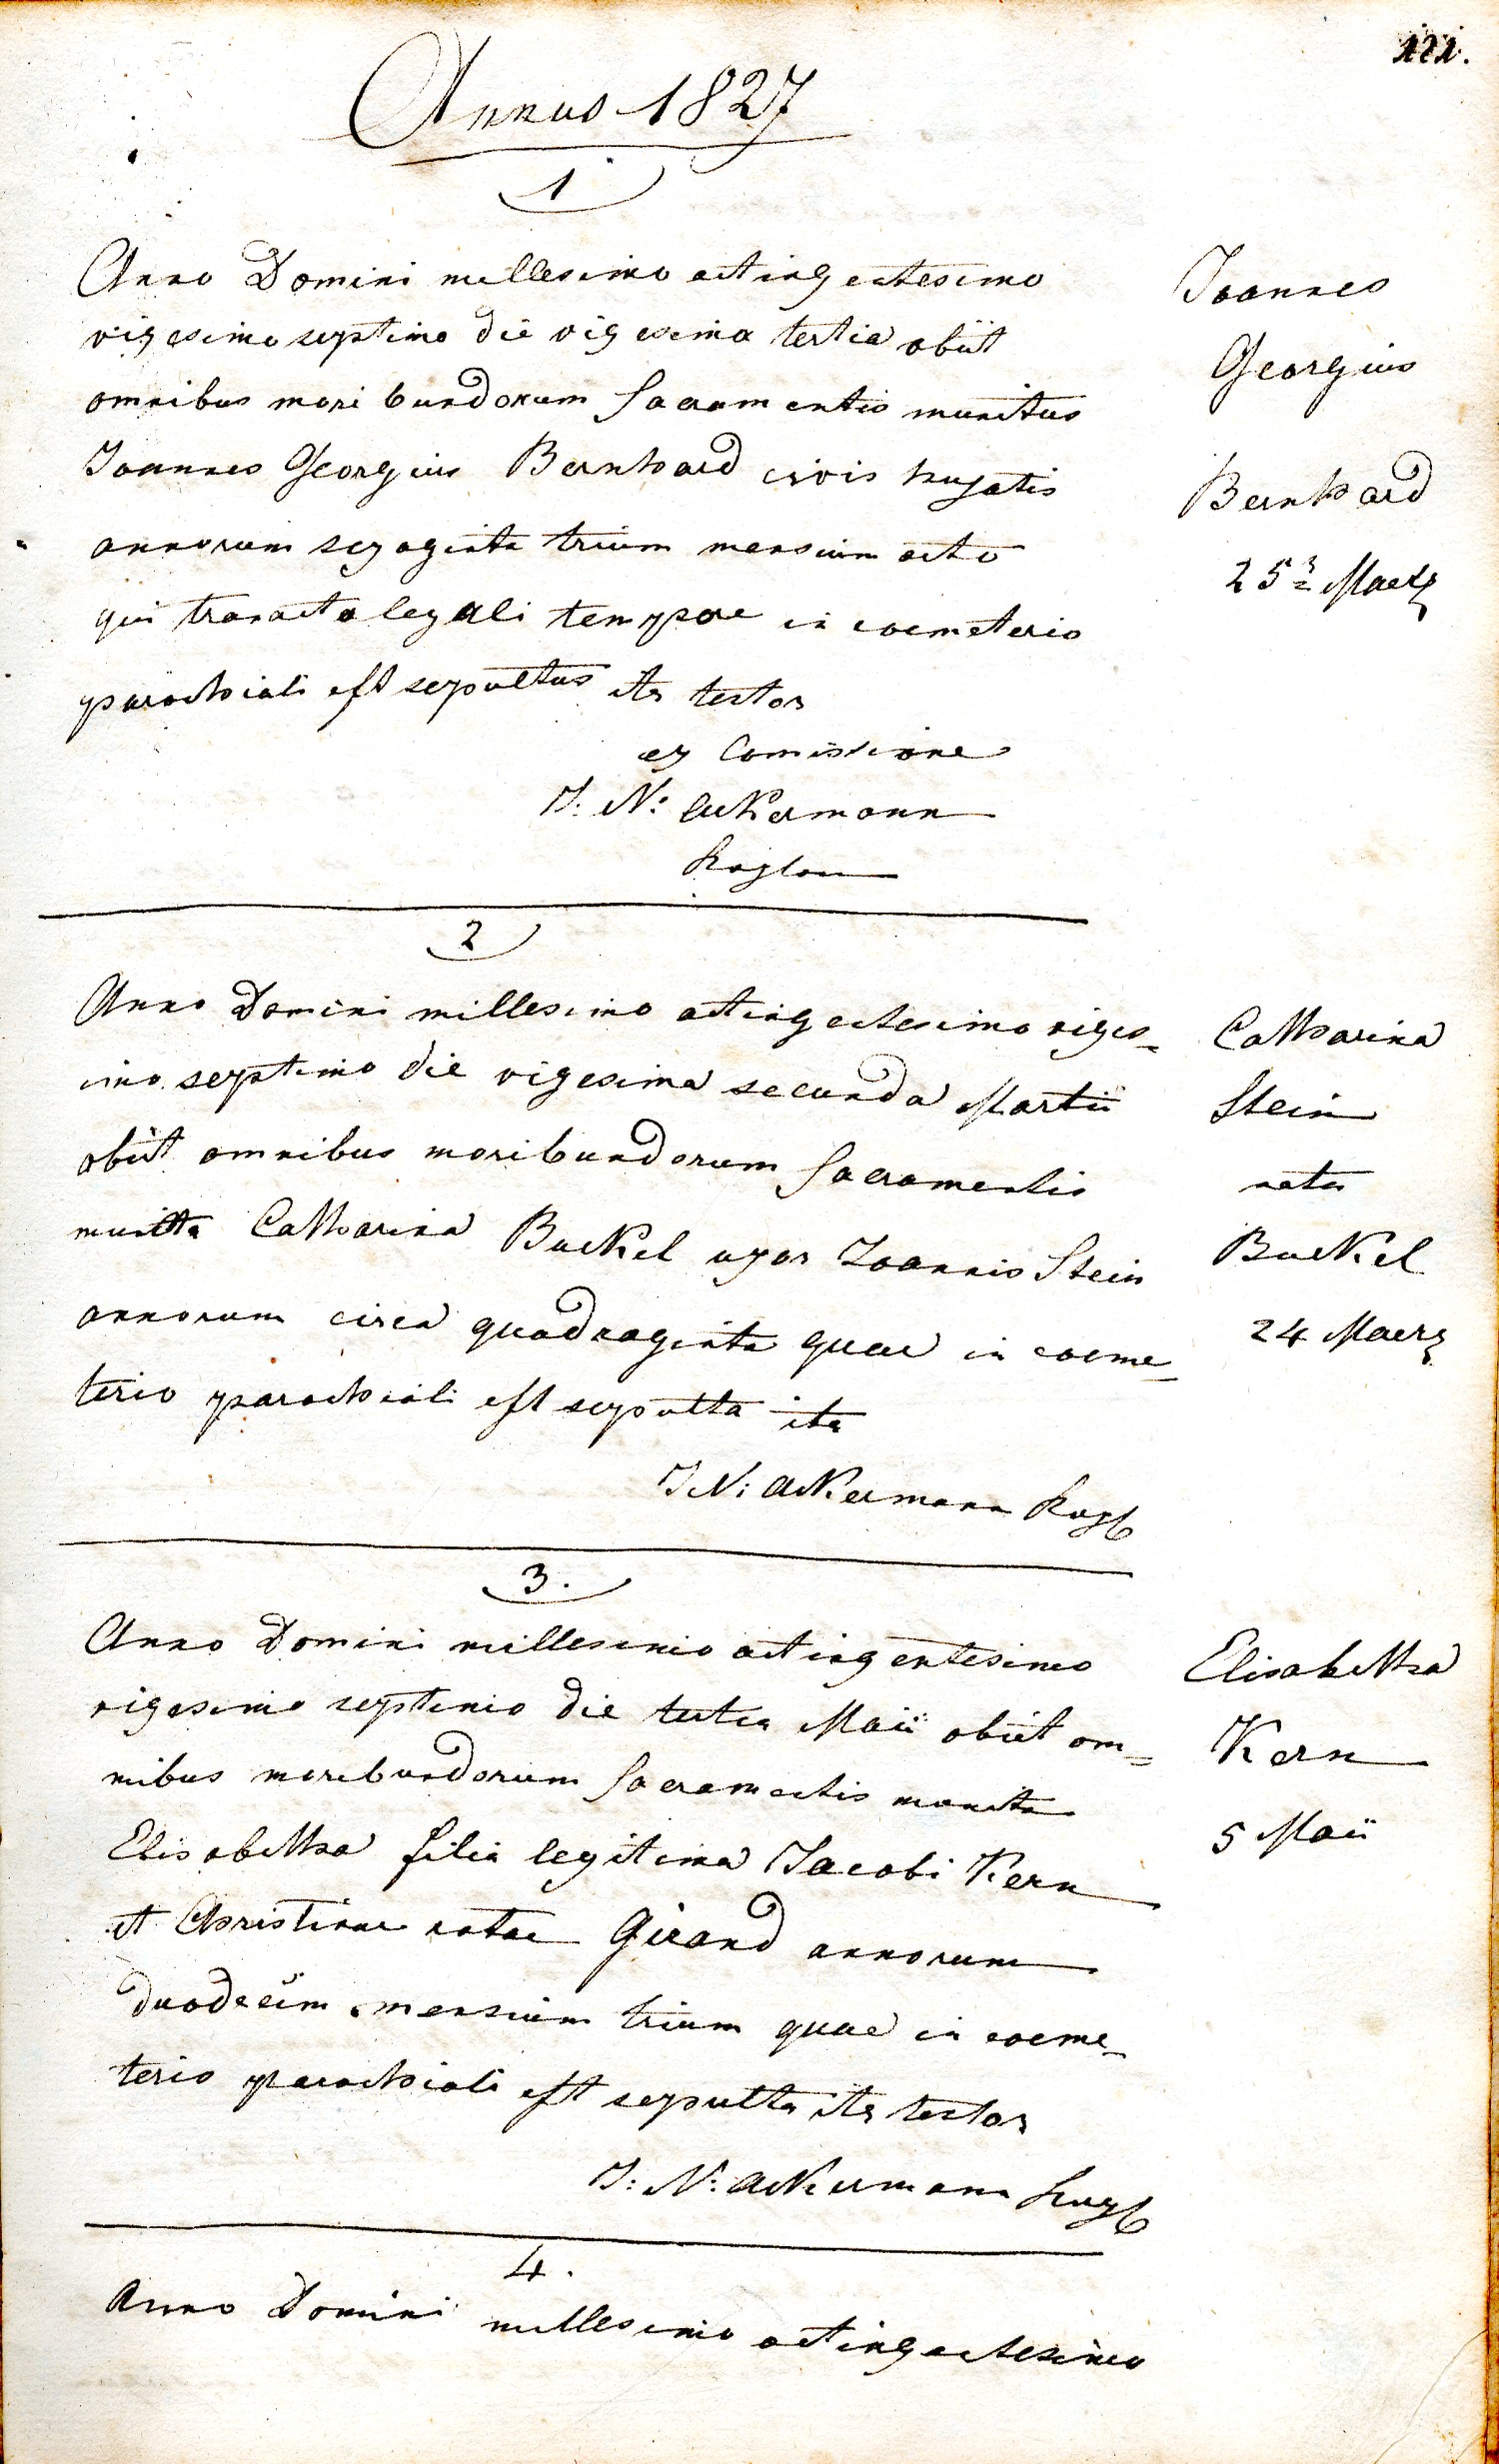 Annus 1827
1
Anno Domini millesimo octingentesimo
vigesimo septimo die vigesima tertia obiit
omnibus moribundorum Sacramentis munitus
Joannes Georgius Bernhard civis hujatis
annorum sexaginta trium mensium octo
qui transacto legali tempore in coemeterio
parochiali est sepultus ita testor
ex Comissione
J: N: Ackermann
2
Anno Domini millesimo octingentesimo viges=
imo septimo die vigesima secunda Martii
obiit omnibus moribundorum Sacramentis
munita Catharina Buckel uxor Joannis Stein
annorum circa quadraginta quae in coeme=
terio parochiali est sepulta ita
J N: Ackermann
3.
Anno Domini millesimo octingentesimo
vigesimo septimo die tertia Maii obiit om=
nibus moribundorum Sacramentis munita
Elisabetha filia legitima Jacobi Kern
et Christinae natae Girand annorum
duodecim mensium trium quae in coeme=
terio parochiali est sepulta ita testor
J: N: Ackermann
4.
Anno Domini millesimo octingentesimo
Joannes
Georgius
Bernhard
25 Maerz
Catharina
Stein
nata
Buckel
24 Maerz
Elisabetha
Kern
5 Maii